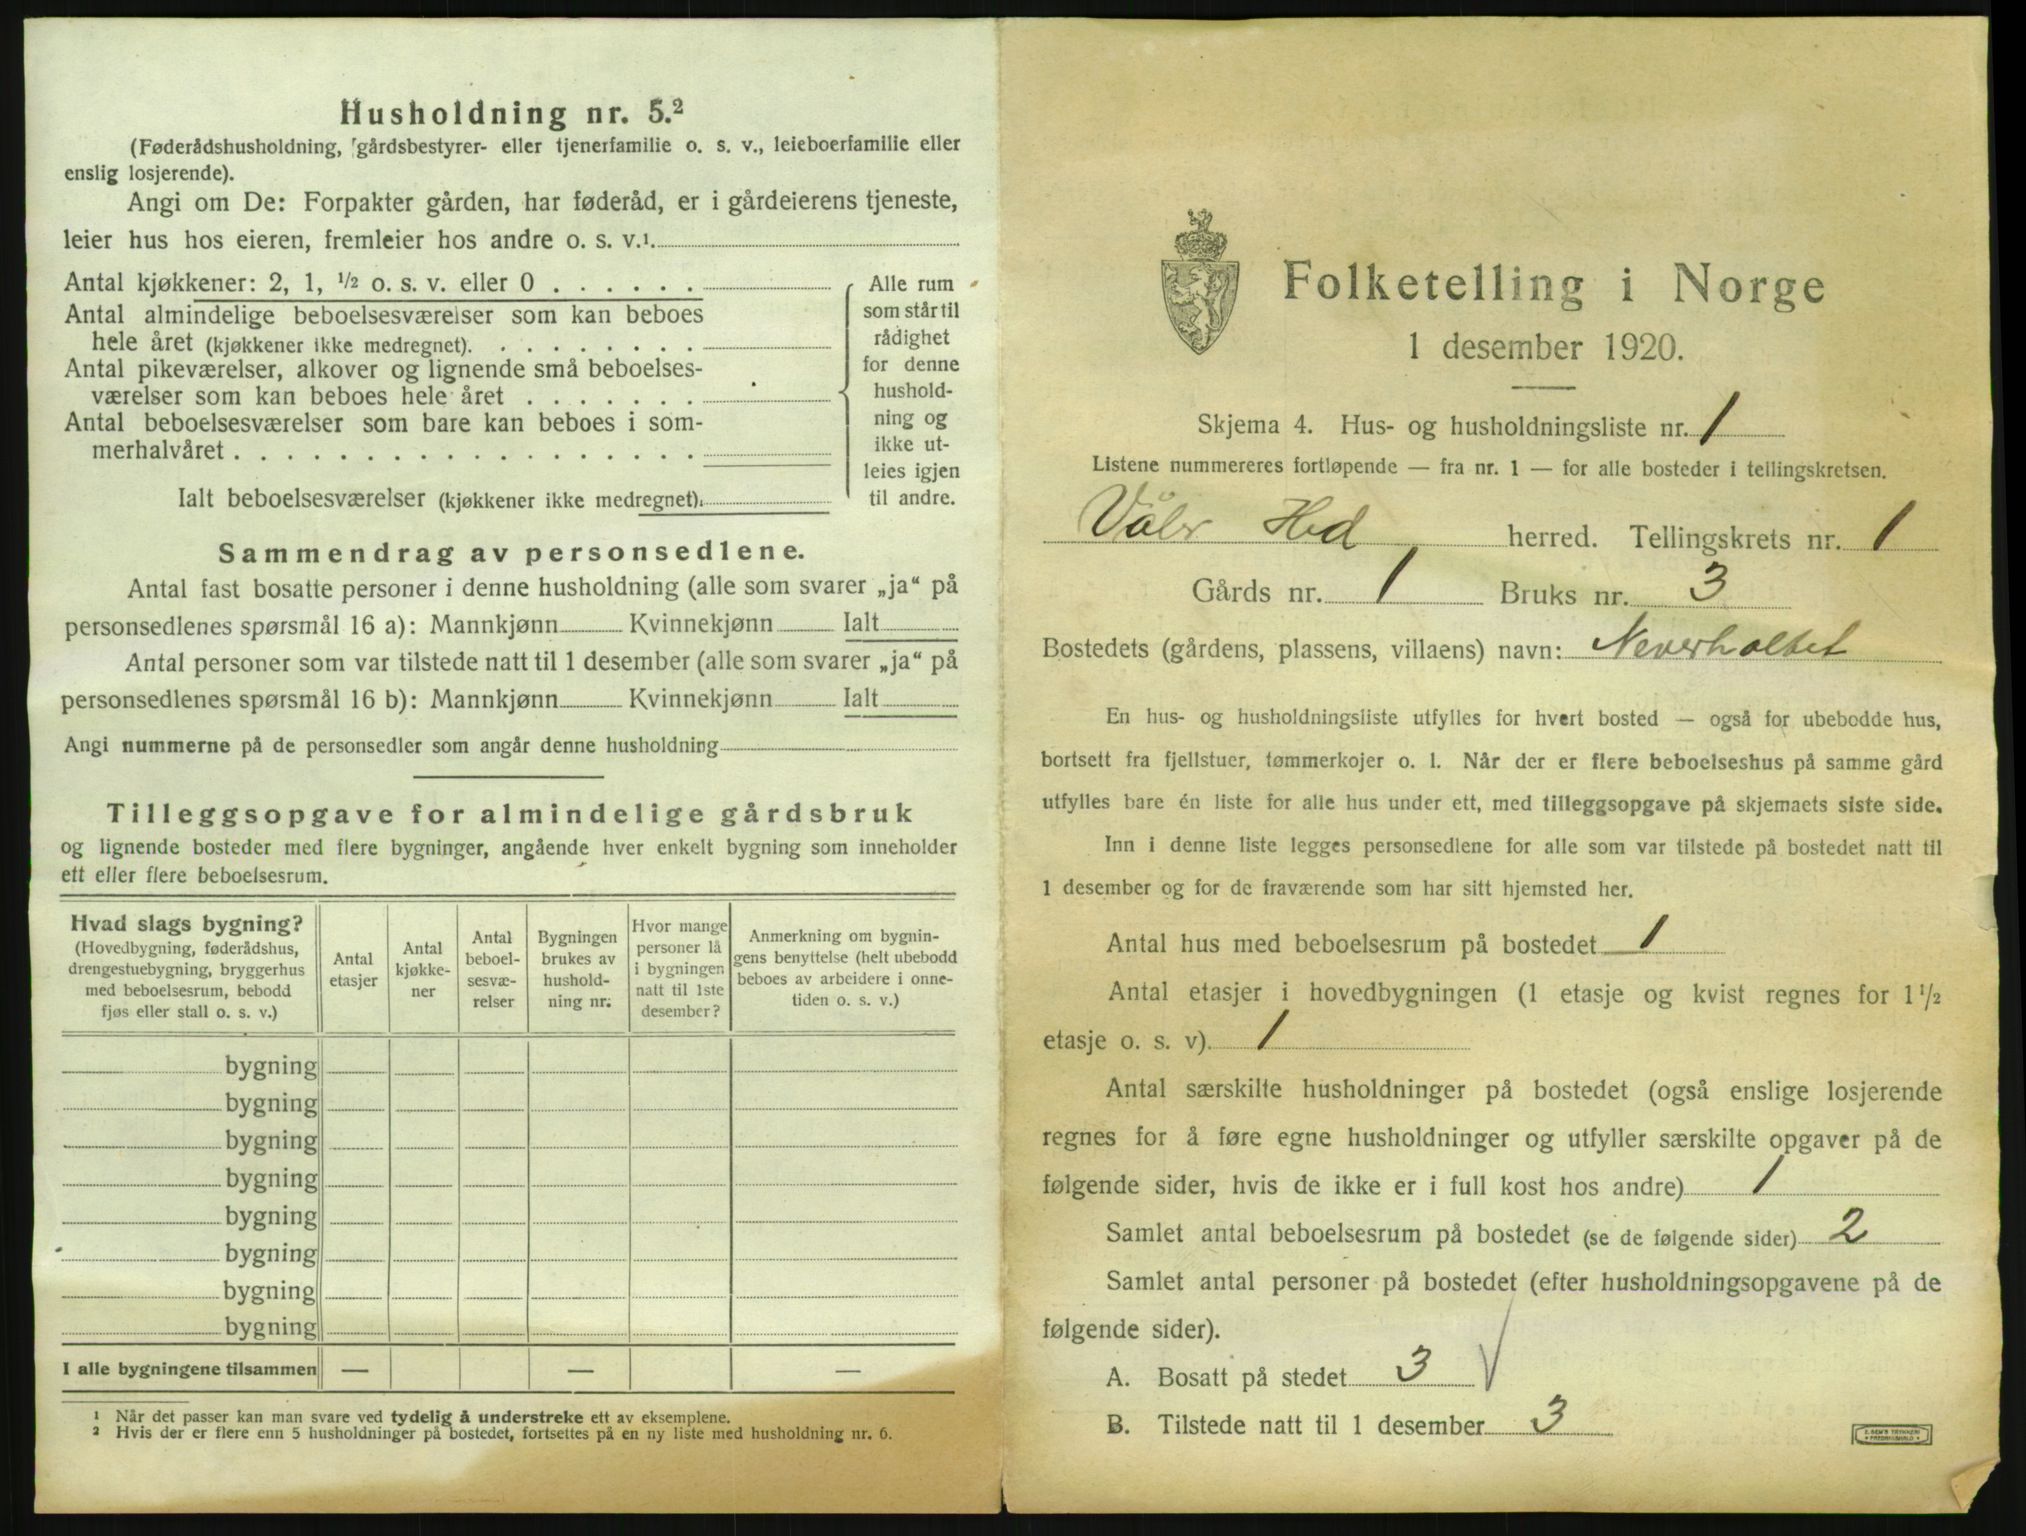 Husholdning nr. 5.²
(Føderådshusholdning, gårdsbestyrer- eller tjenerfamilie o. s. v., leieboerfamilie eller
enslig losjerende).
Angi om De: Forpakter gården, har føderåd, er i gårdeierens tjeneste,
leier hus hos eieren, fremleier hos andre o. s. v.¹
Antal kjøkkener: 2, 1, ½ o. s. v. eller 0 . . . . . .
Antal almindelige beboelsesværelser som kan beboes
hele året (kjøkkener ikke medregnet). . . . . . . . .
Antal pikeværelser, alkover og lignende små beboelses-
værelser som kan beboes hele året . . . . . . .
Antal beboelsesværelser som bare kan beboes i som-
merhalvåret . . . . . . . . . . . . . . . . . .
Ialt beboelsesværelser (kjøkkener ikke medregnet).
Alle rum
som står til
rådighet
for denne
hushold-
ning og
ikke ut-
leies igjen
til andre.
Sammendrag av personsedlene.
Antal fast bosatte personer i denne husholdning (alle som svarer „ja“ på
personsedlenes spørsmål 16 a): Mannkjønn Kvinnekjønn Ialt
Antal personer som var tilstede natt til 1 desember (alle som svarer „ja“ på
personsedlenes spørsmål 16 b): Mannkjønn Kvinnekjønn Ialt
Angi nummerne på de personsedler som angår denne husholdning
Tilleggsopgave for almindelige gårdsbruk
og lignende bosteder med flere bygninger, angående hver enkelt bygning som inneholder
ett eller flere beboelsesrum.
Hvad slags bygning?
(Hovedbygning, føderådshus,
drengestuebygning, bryggerhus
med beboelsesrum, bebodd
fjøs eller stall o. s. v.)
Antal
etasjer
Antal
kjøkke-
ner
Antal
beboel-
sesvæ-
relser
Bygningen
brukes av
hushold-
ning nr.
Hvor mange
personer lå
i bygningen
natt til 1ste
desember?
Anmerkning om bygnin-
gens benyttelse (helt ubebodd
beboes av arbeidere i onne-
tiden o. s. v.)
bygning
bygning
bygning
bygning
bygning
bygning
bygning
bygning
I alle bygningene tilsammen — — —
¹ Når det passer kan man svare ved tydelig å understreke ett av eksemplene.
² Hvis der er flere enn 5 husholdninger på bostedet, fortsettes på en ny liste med husholdning nr. 6.
Folketelling i Norge
1 desember 1920.
Skjema 4. Hus- og husholdningsliste nr. 1
Listene nummereres fortløpende — fra nr. 1 — for alle bosteder i tellingskretsen.
Våler Hed herred. Tellingskrets nr. 1
Gårds nr. 1 Bruks nr. 3
Bostedets (gårdens, plassens, villaens) navn: Neverholtet
En hus- og husholdningsliste utfylles for hvert bosted — også for ubebodde hus,
bortsett fra fjellstuer, tømmerkojer o. l. Når der er flere beboelseshus på samme gård
utfylles bare én liste for alle hus under ett, med tilleggsopgave på skjemaets siste side.
Inn i denne liste legges personsedlene for alle som var tilstede på bostedet natt til
1 desember og for de fraværende som har sitt hjemsted her.
Antal hus med beboelsesrum på bostedet 1
Antal etasjer i hovedbygningen (1 etasje og kvist regnes for 1½
etasje o. s. v). 1
Antal særskilte husholdninger på bostedet (også enslige losjerende
regnes for å føre egne husholdninger og utfyller særskilte opgaver på de
følgende sider, hvis de ikke er i full kost hos andre) 1
Samlet antal beboelsesrum på bostedet (se de følgende sider) 2
Samlet antal personer på bostedet (efter husholdningsopgavene på de
følgende sider).
A. Bosatt på stedet 3 √
B. Tilstede natt til 1 desember 3